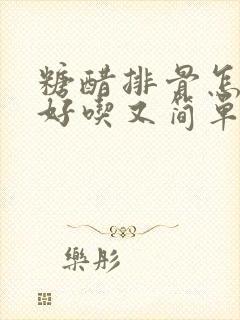 糖醋排骨怎
好喫又简单
樂彤